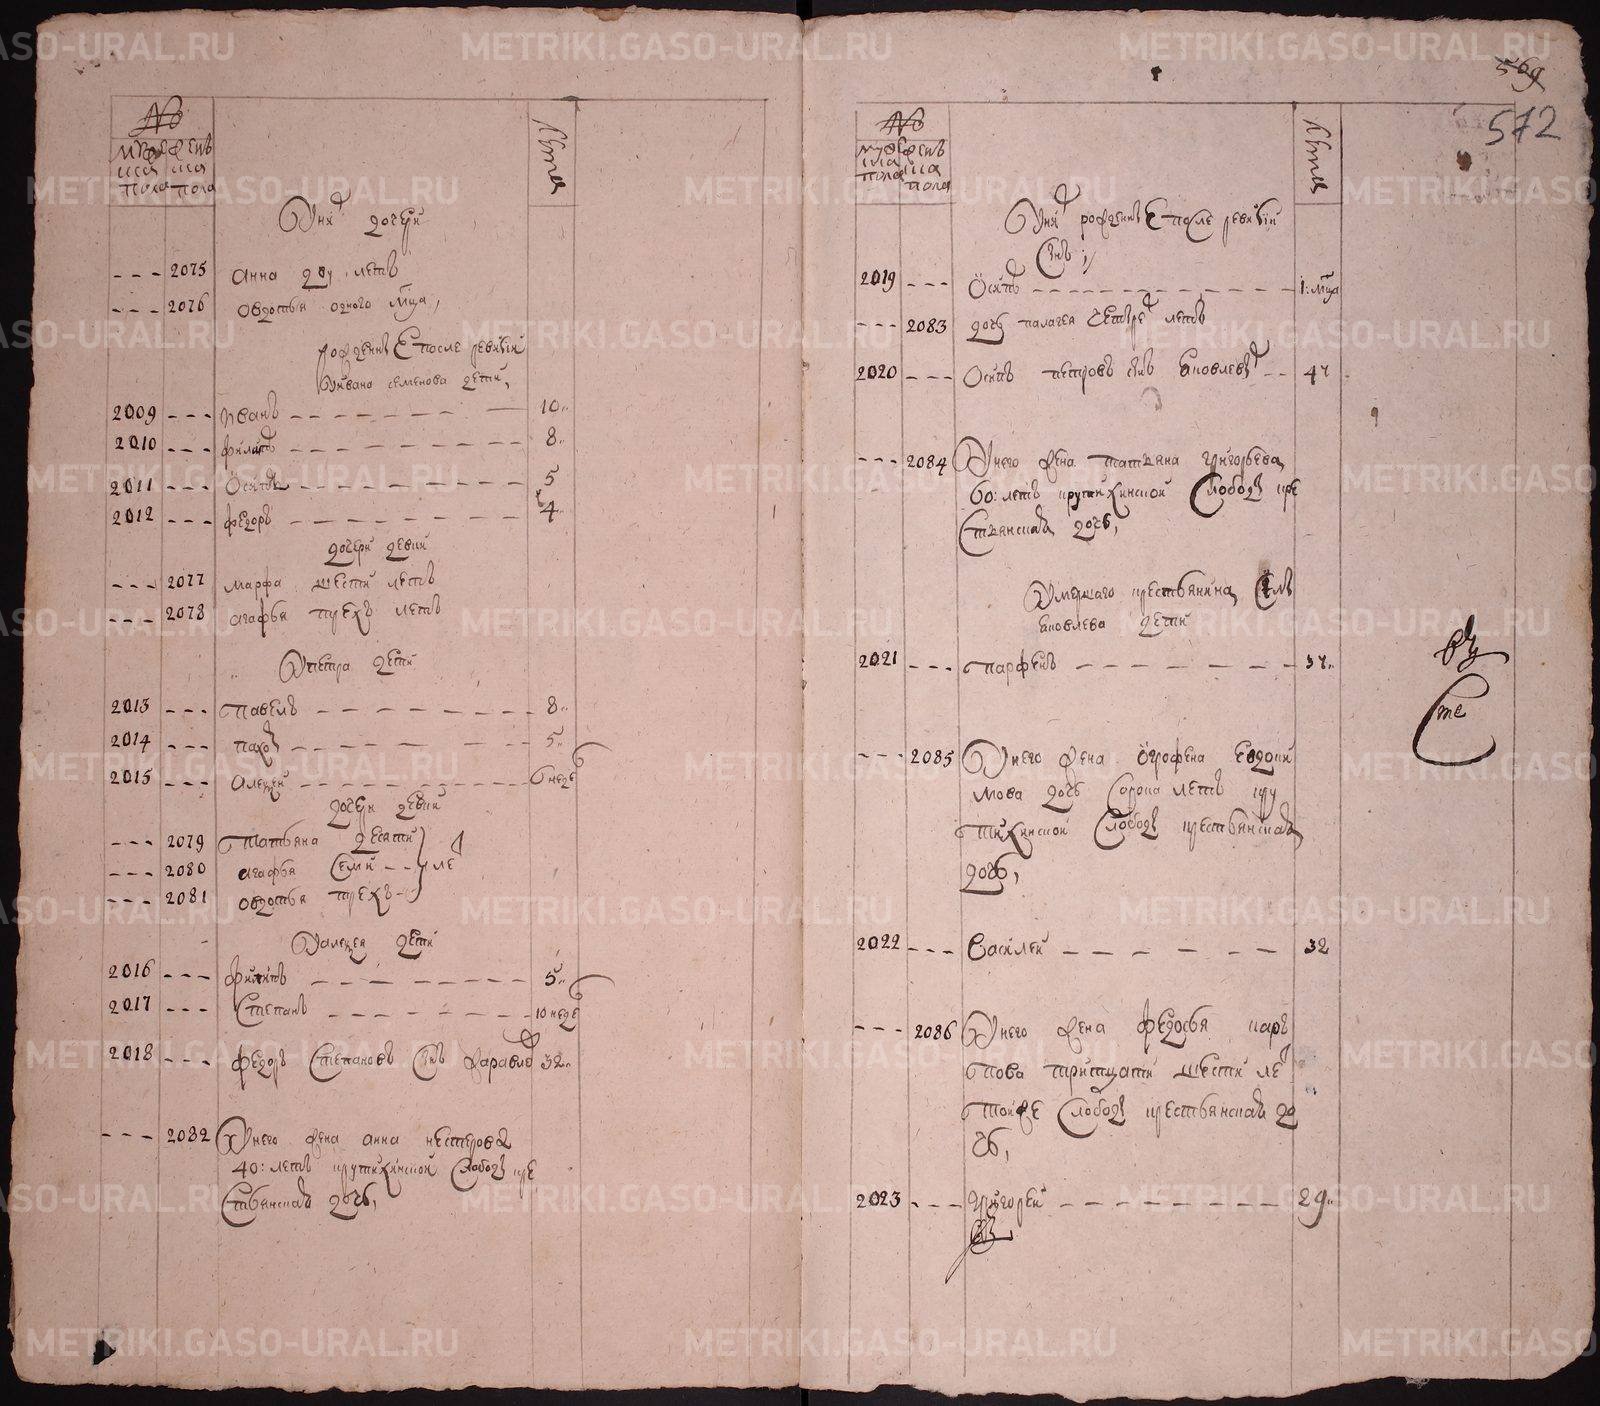 №
мужеска пола
женска пола
лета
У них дочери
2075 анна дву летъ
2076 овдотья одного мсца,
рожденные после ревизии
у ивана семенова дети,
2009 иванъ 10
2010 филатъ 8
2011 Осипъ 5
2012 федоръ 4
дочери девки
2077 марфа шести летъ
2078 агафья трехъ летъ
У петра дети
2013 павелъ 8
2014 пахом 5
2015 алексей 6 неде
дочери девки
2079 татьяна десяти
2080 агафья семи ле
2081 овдотья трехъ
У алексея дети
2016 филипъ 5
2017 Степанъ 10 неде
2018 федоръ Степановъ снъ 32
2082 У него жена анна нестерова
40: летъ крутихинской Слободы кре
стьянская дочь,
569
572
№
мужеска пола
женска пола
лета
У них рожденные после ревизии
снъ
2019 Осипъ 1: мсца
2083 дочь палагея четыре летъ
2020 Осипъ петровъ снъ яковлевъ 47
2084 У него жена татьяна григорьева
60: летъ крутихинской Слободы кре
стьянская дочь,
Умершаго крестьянина
яковлева дети
2021 парфенъ 37
2085 У него жена огрофена евдоки
мова дочь Сорока летъ кру
тихинской Слободы крестьянская
дочь,
2022 Василей 32
2086 У него жена федосья кар
пова тритцати шести ле
тойже Слободы крестьянская до
чь,
2023 григорей 29